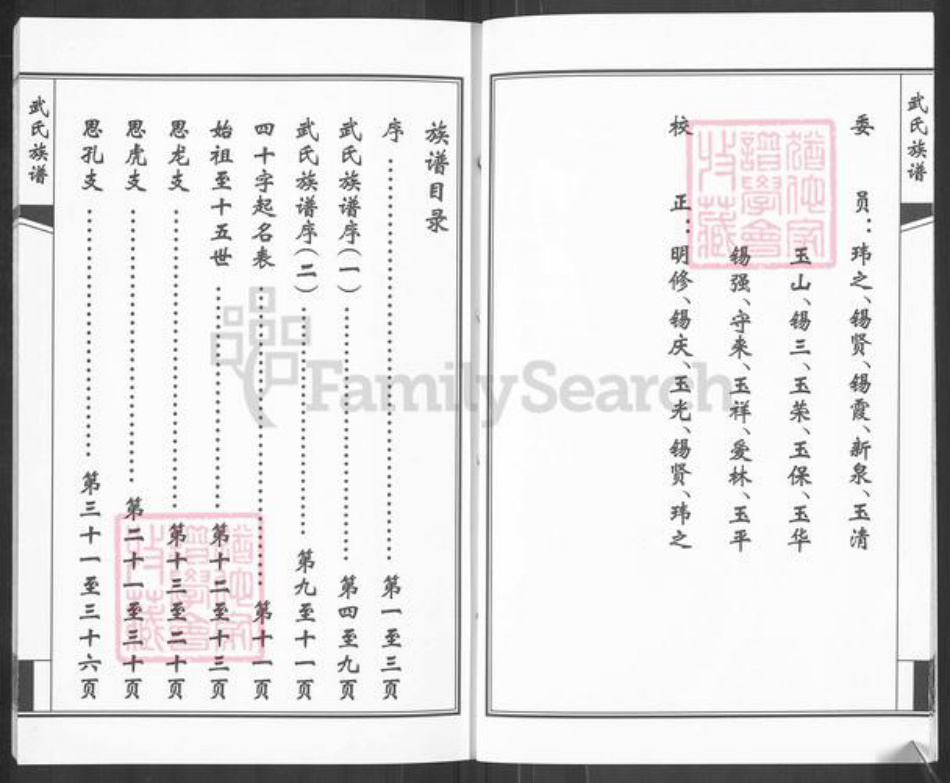 武氏族谱
委员：玮之、锡贤、锡霞、新泉、玉清
玉山、锡三、玉荣、玉保、玉华
锡强、守来、玉祥、爱林、玉平
校正：明修、锡庆、玉光、锡贤、玮之
族谱目录
序……第一至三页
武氏族谱序（一）……第四至九页
武氏族谱序（二）……第九至十一页
四十字起名表……第十一页
始祖至十五世……第十二至十三页
思龙支……第十三至二十页
思虎支……第二十一至三十页
思孔支……第三十一至三十六页
武氏族谱
FamilySearch